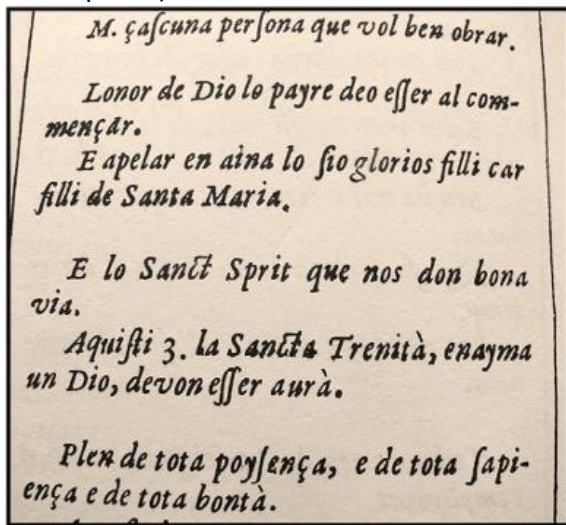 M. çaſcuna perſona que vol ben obrar.
Lonor de Dio lo payre deo eſſer al com-
mençar.
E apelar en aina lo ſio glorios filli car
filli de Santa Maria.
E lo Sanct Sprit que nos don bona
via.
Aquiſti 3. la Sancta Trenità, enayma
un Dio, devon eſſer aurà.
Plen de tota poyſença, e de tota ſapi-
ença e de tota bontà.